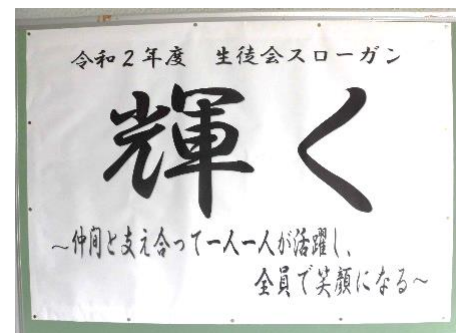 令和2年度　生徒会スローガン
輝く
～仲間と支え合って一人一人が活躍し、
全員で笑顔になる～